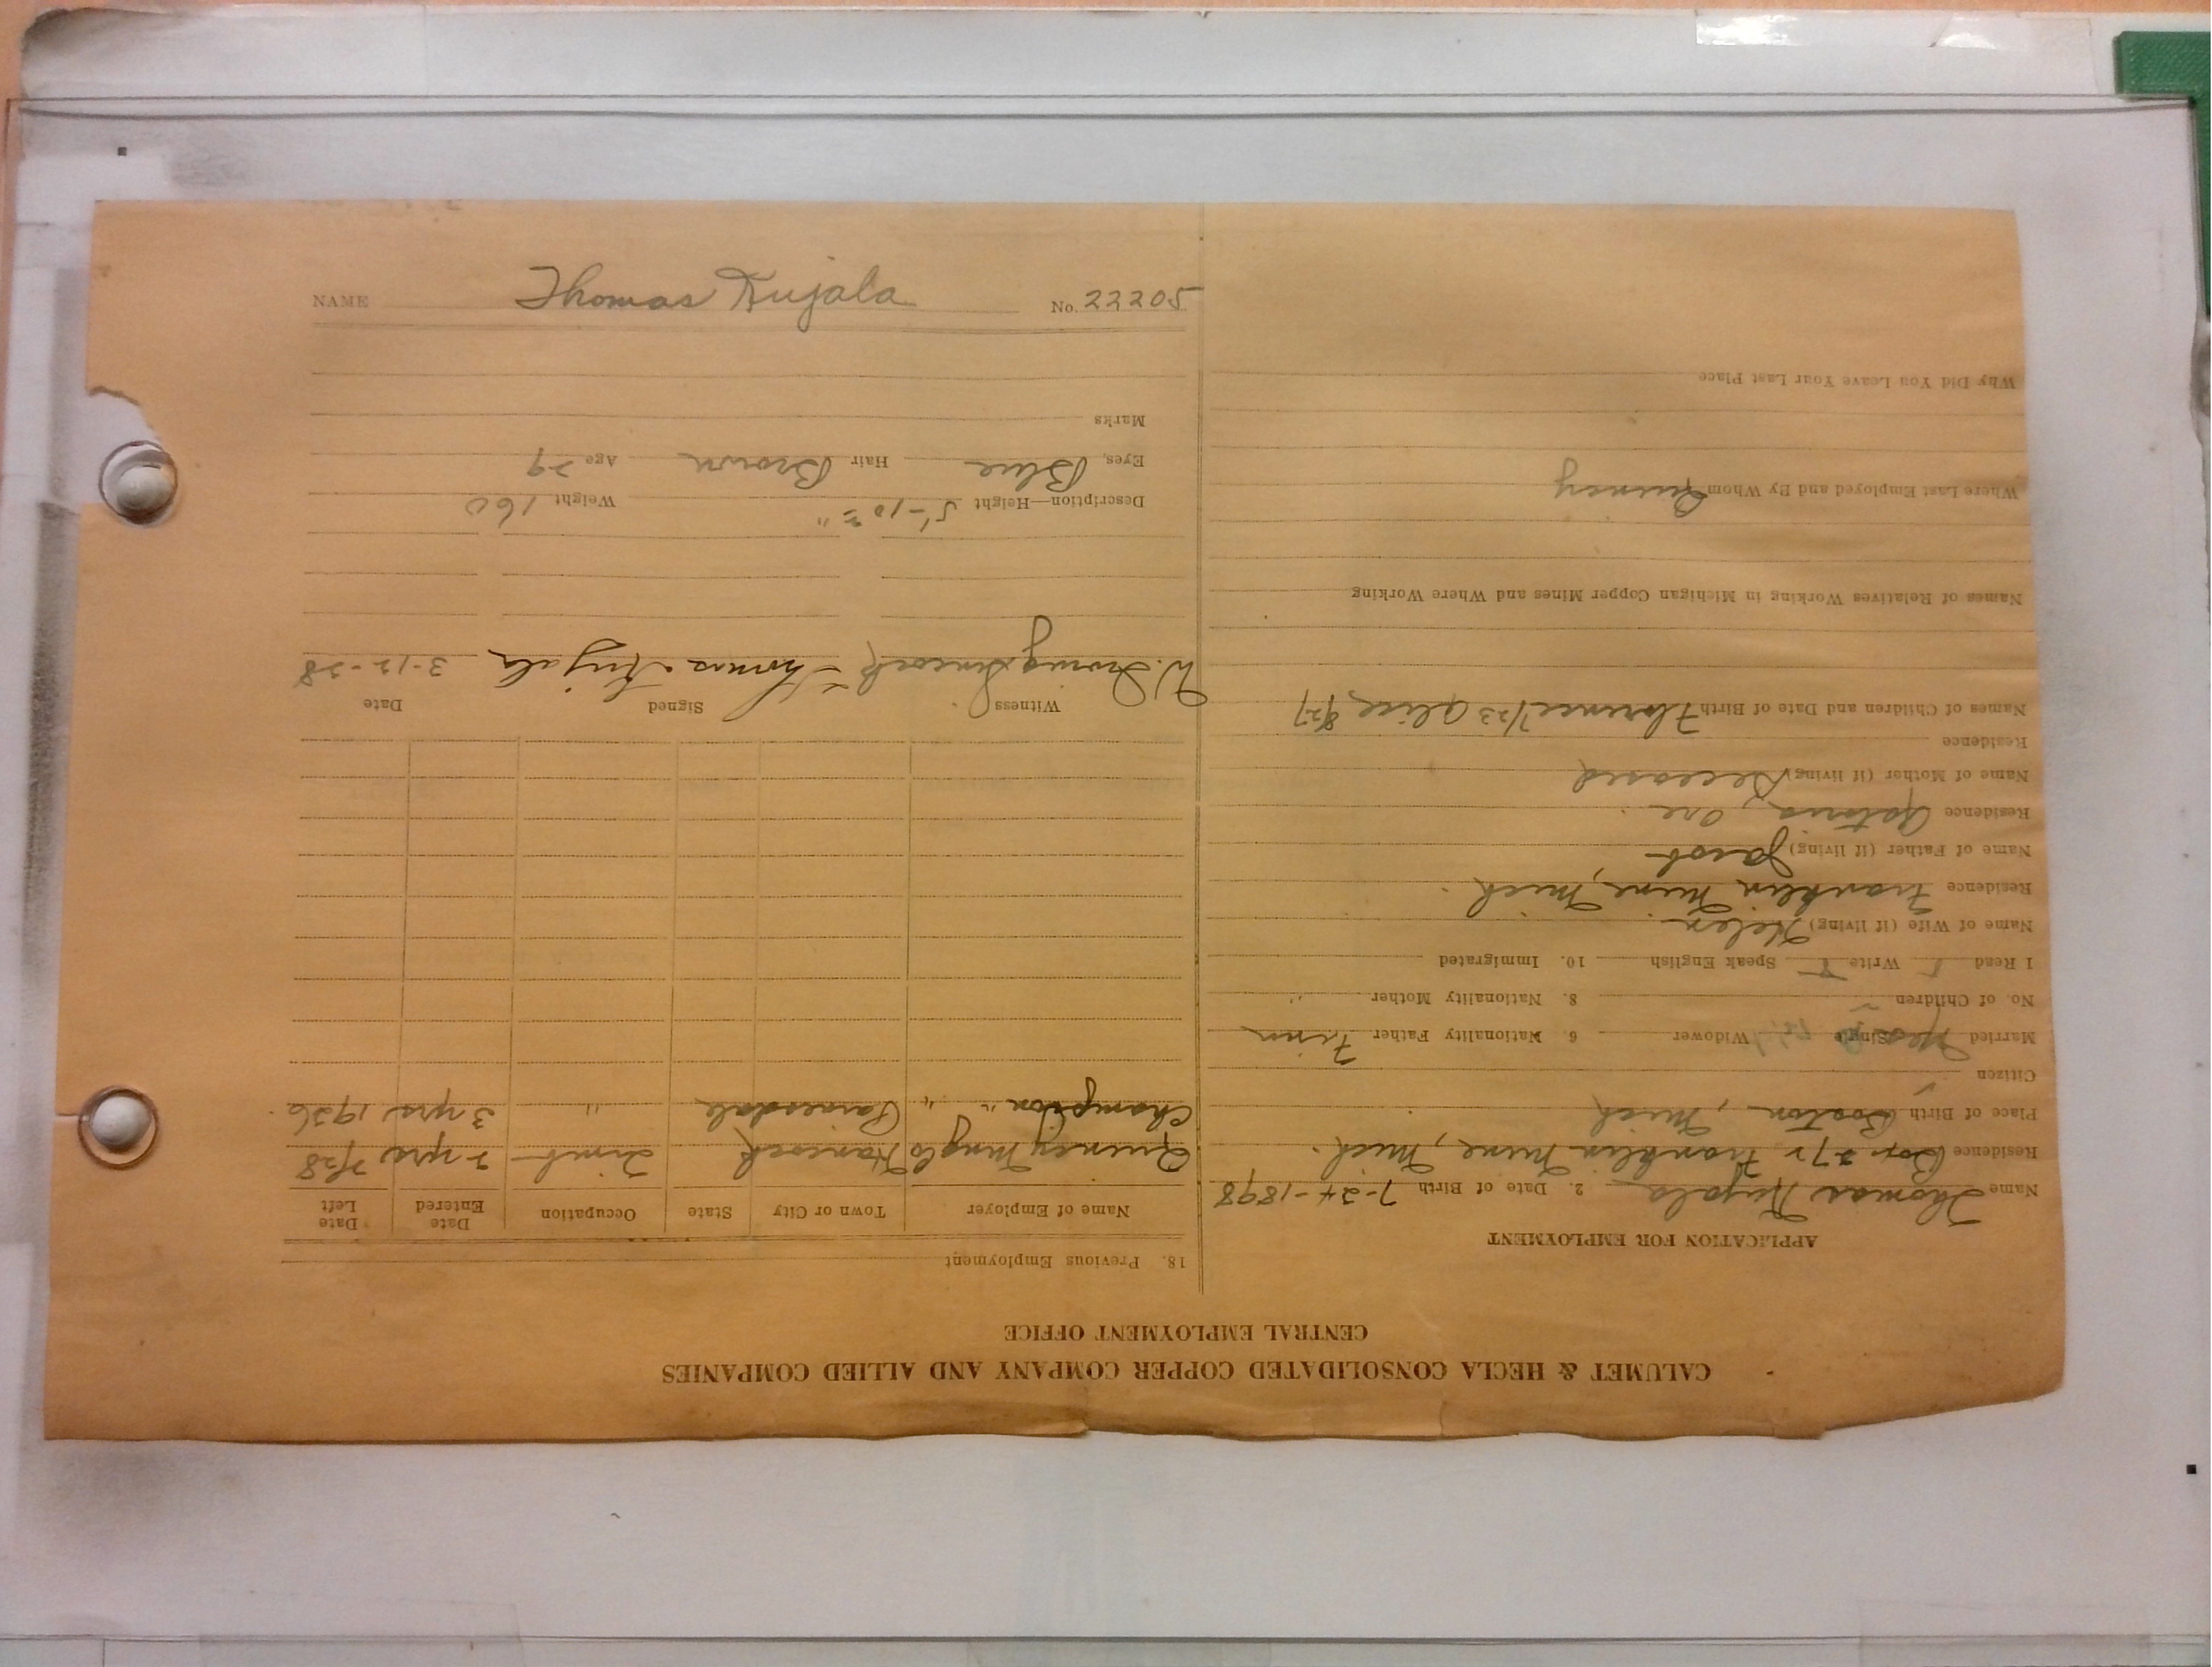 NAME Thomas Kujala No. 22205
CALUMET & HECLA CONSOLIDATED COPPER COMPANY AND ALLIED COMPANIES
CENTRAL EMPLOYMENT OFFICE
APPLICATION FOR EMPLOYMENT
Name Thomas Kujala 2. Date of Birth 7-24-1898
Residence Box 272 Franklin Mine, Mich.
Place of Birth Boston, Mich
Citizen
Married Yes Single Widower 6. Nationality Father Finn
No. of Children 2 8. Nationality Mother "
I Read Write Speak English 10. Immigrated
Name of Wife (if living) Helen
Residence Franklin Mine, Mich.
Name of Father (if living) Jacob
Residence Astoria, Ore.
Name of Mother (if living) Deceased
Residence
Names of Children and Date of Birth Florence 7/23 Alice 8/27
Names of Relatives Working in Michigan Copper Mines and Where Working
Where Last Employed and By Whom Quincy
Why Did You Leave Your Last Place
18. Previous Employment
Name of Employer Town or City State Occupation Date Entered Date Left
Quincy Mng Co Hancock Timb 2 yrs 2/28
Champion " " Painesdale " 3 yrs 1926
Witness Signed Date
W. Thomas Kujala 3-12-28
Description—Height 5'-10 " Weight 160
Eyes, Blue Hair Brown Age 29
Marks